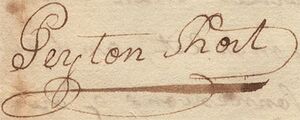 Peyton Short